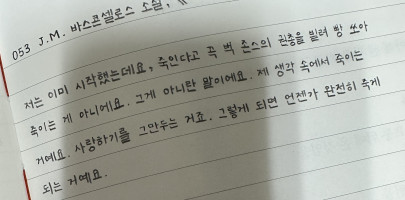 053 J.M. 바스콘셀로스 소설,
저는 이미 시작했는데요, 죽인다고 꼭 벅 존스의 권총을 빌려 빵 쏘아
죽이는 게 아니에요. 그게 아니란 말이에요. 제 생각 속에서 죽이는
거예요. 사랑하기를 그만두는 거죠. 그렇게 되면 언젠가 완전히 죽게
되는 거예요.